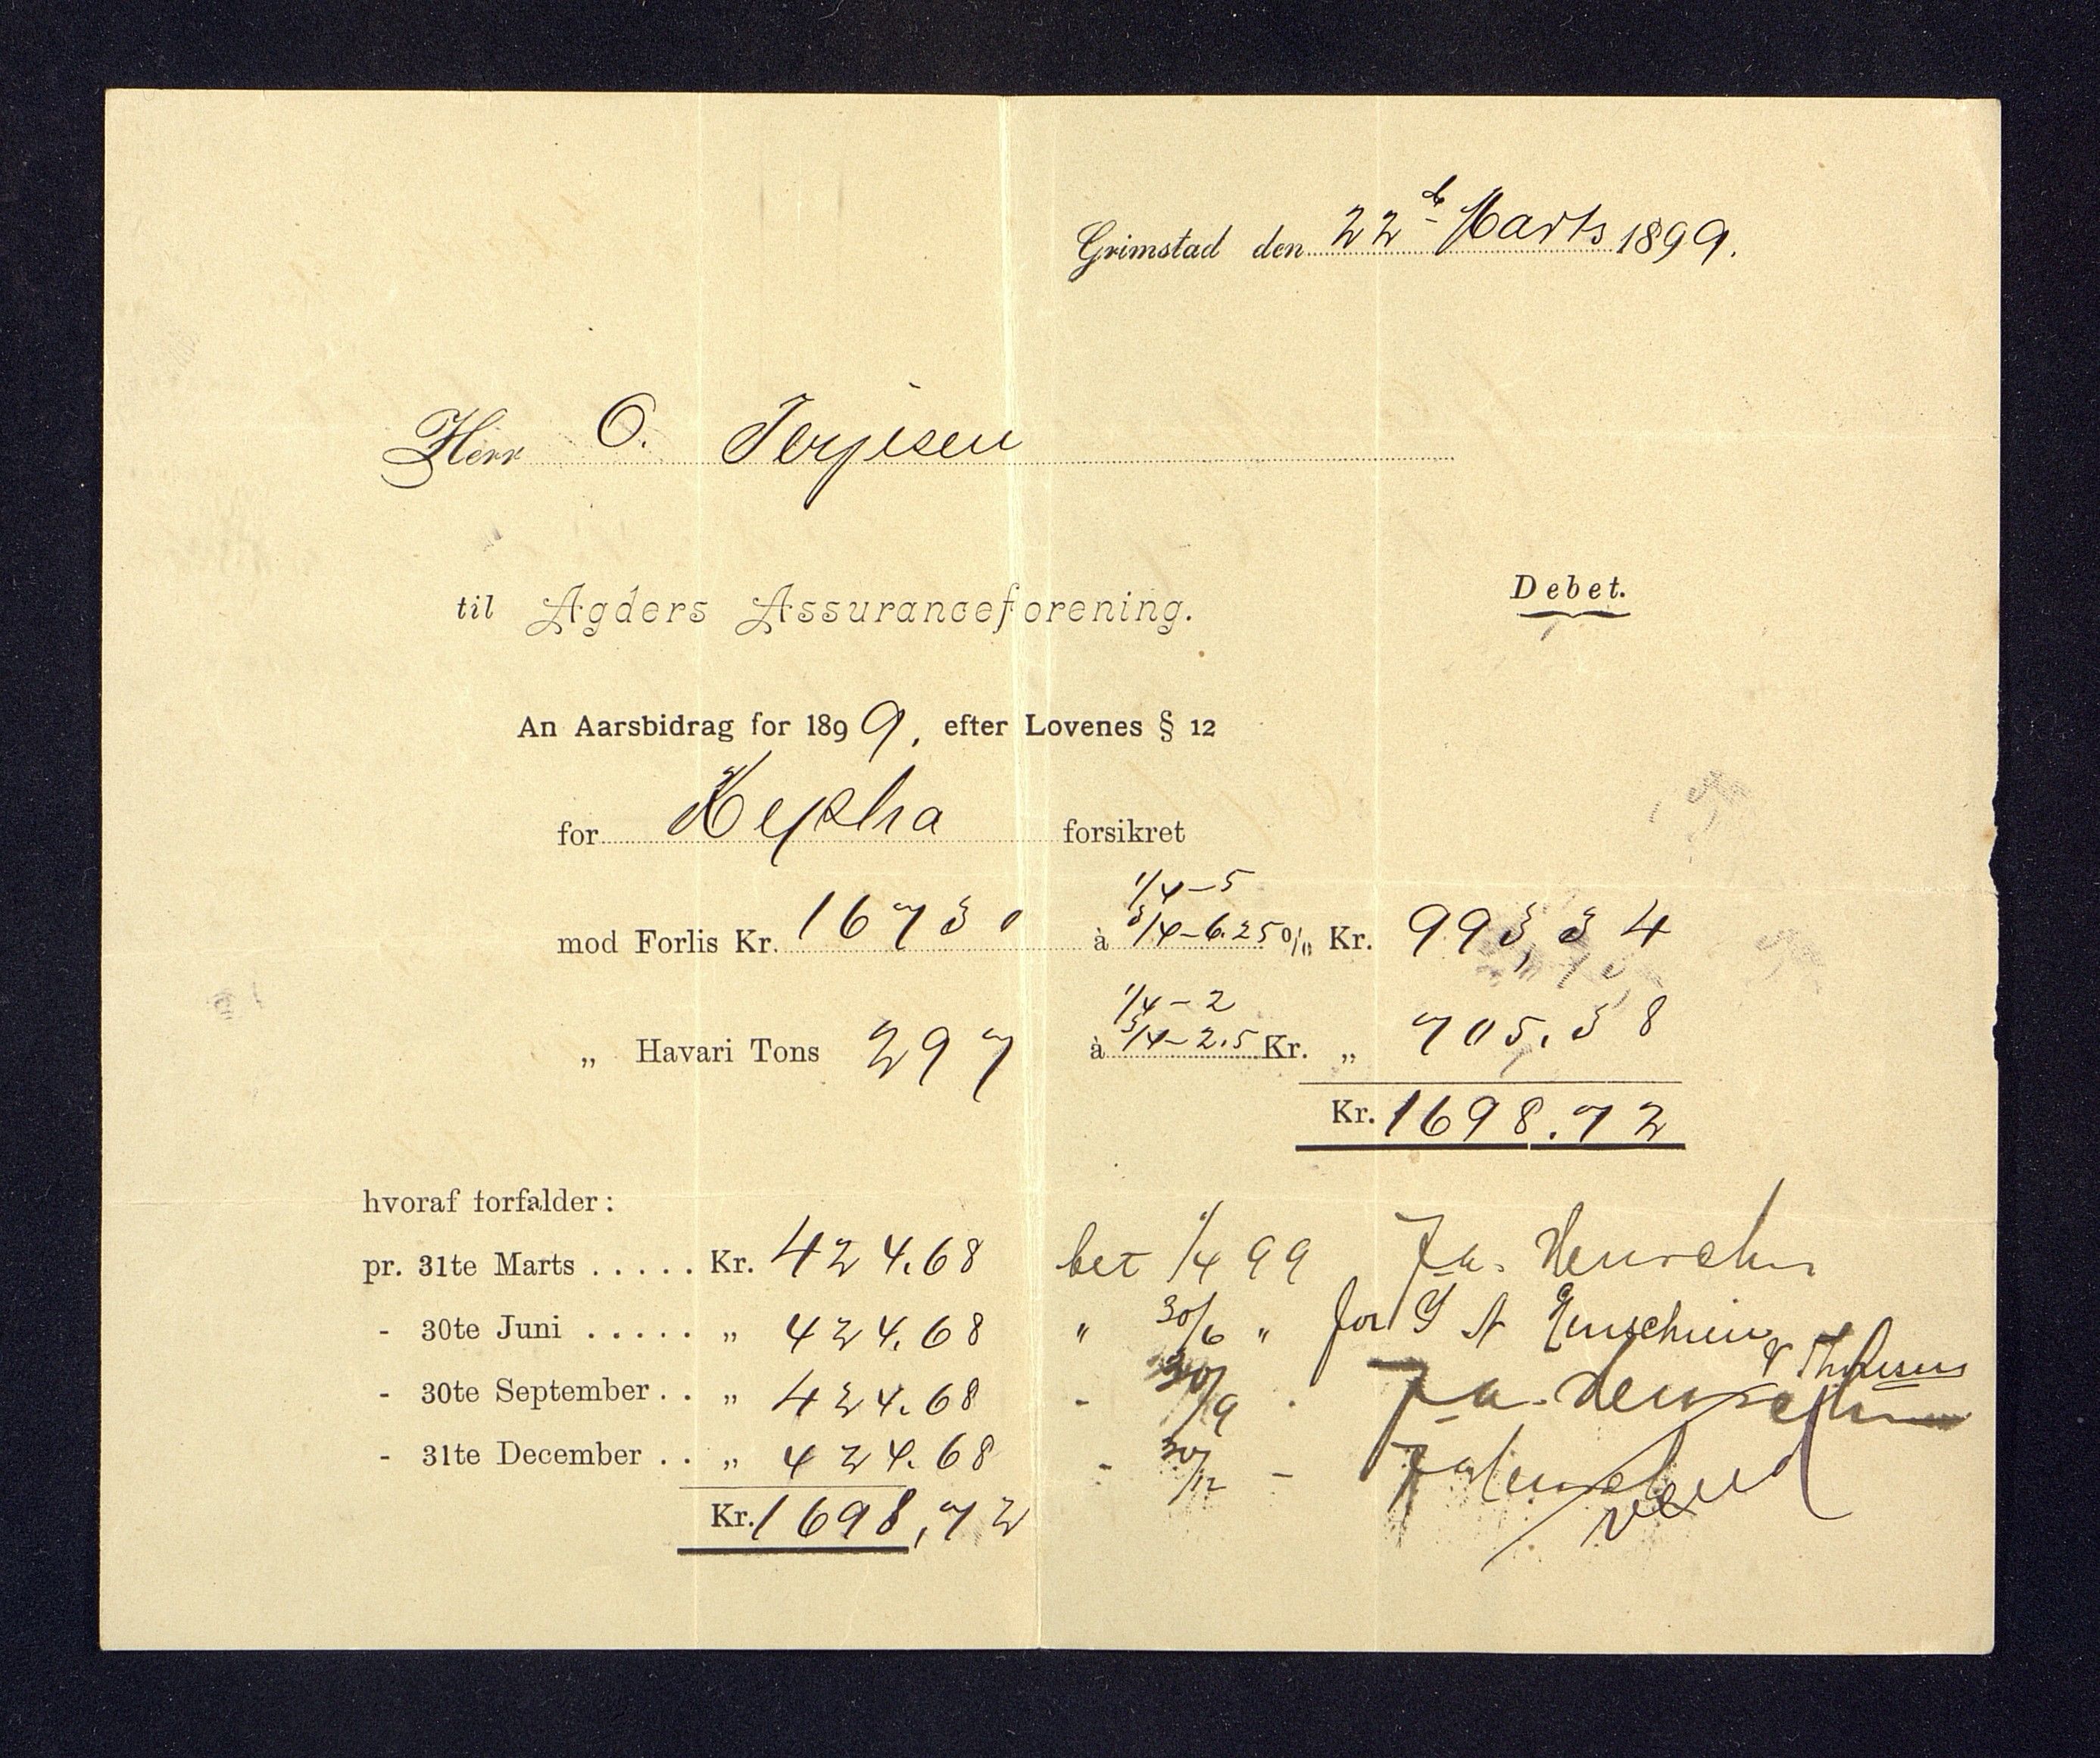 Grimstad den 22de Marts 1899.
Herr O. Terjesen
til Agders Assuranceforening. Debet.
An Aarsbidrag for 1899, efter Lovenes § 12
for Hepha forsikret
1/4 - 5
mod Forlis Kr. 16730 à 3/4 - 6.25 0/0 Kr. 993,34
1/4 - 2
„ Havari Tons 297 à 3/4 - 2.5 Kr. „ 705.38
Kr. 1698.72
hvoraf forfalder:
pr. 31te Marts ..... Kr. 424.68 bet 1/4 99
- 30te Juni ..... „ 424.68 " 30/6 " for
- 30te September .. „ 424.68 - 30/9
- 31te December .. „ 424.68 - 30/12 -
Kr. 1698,72